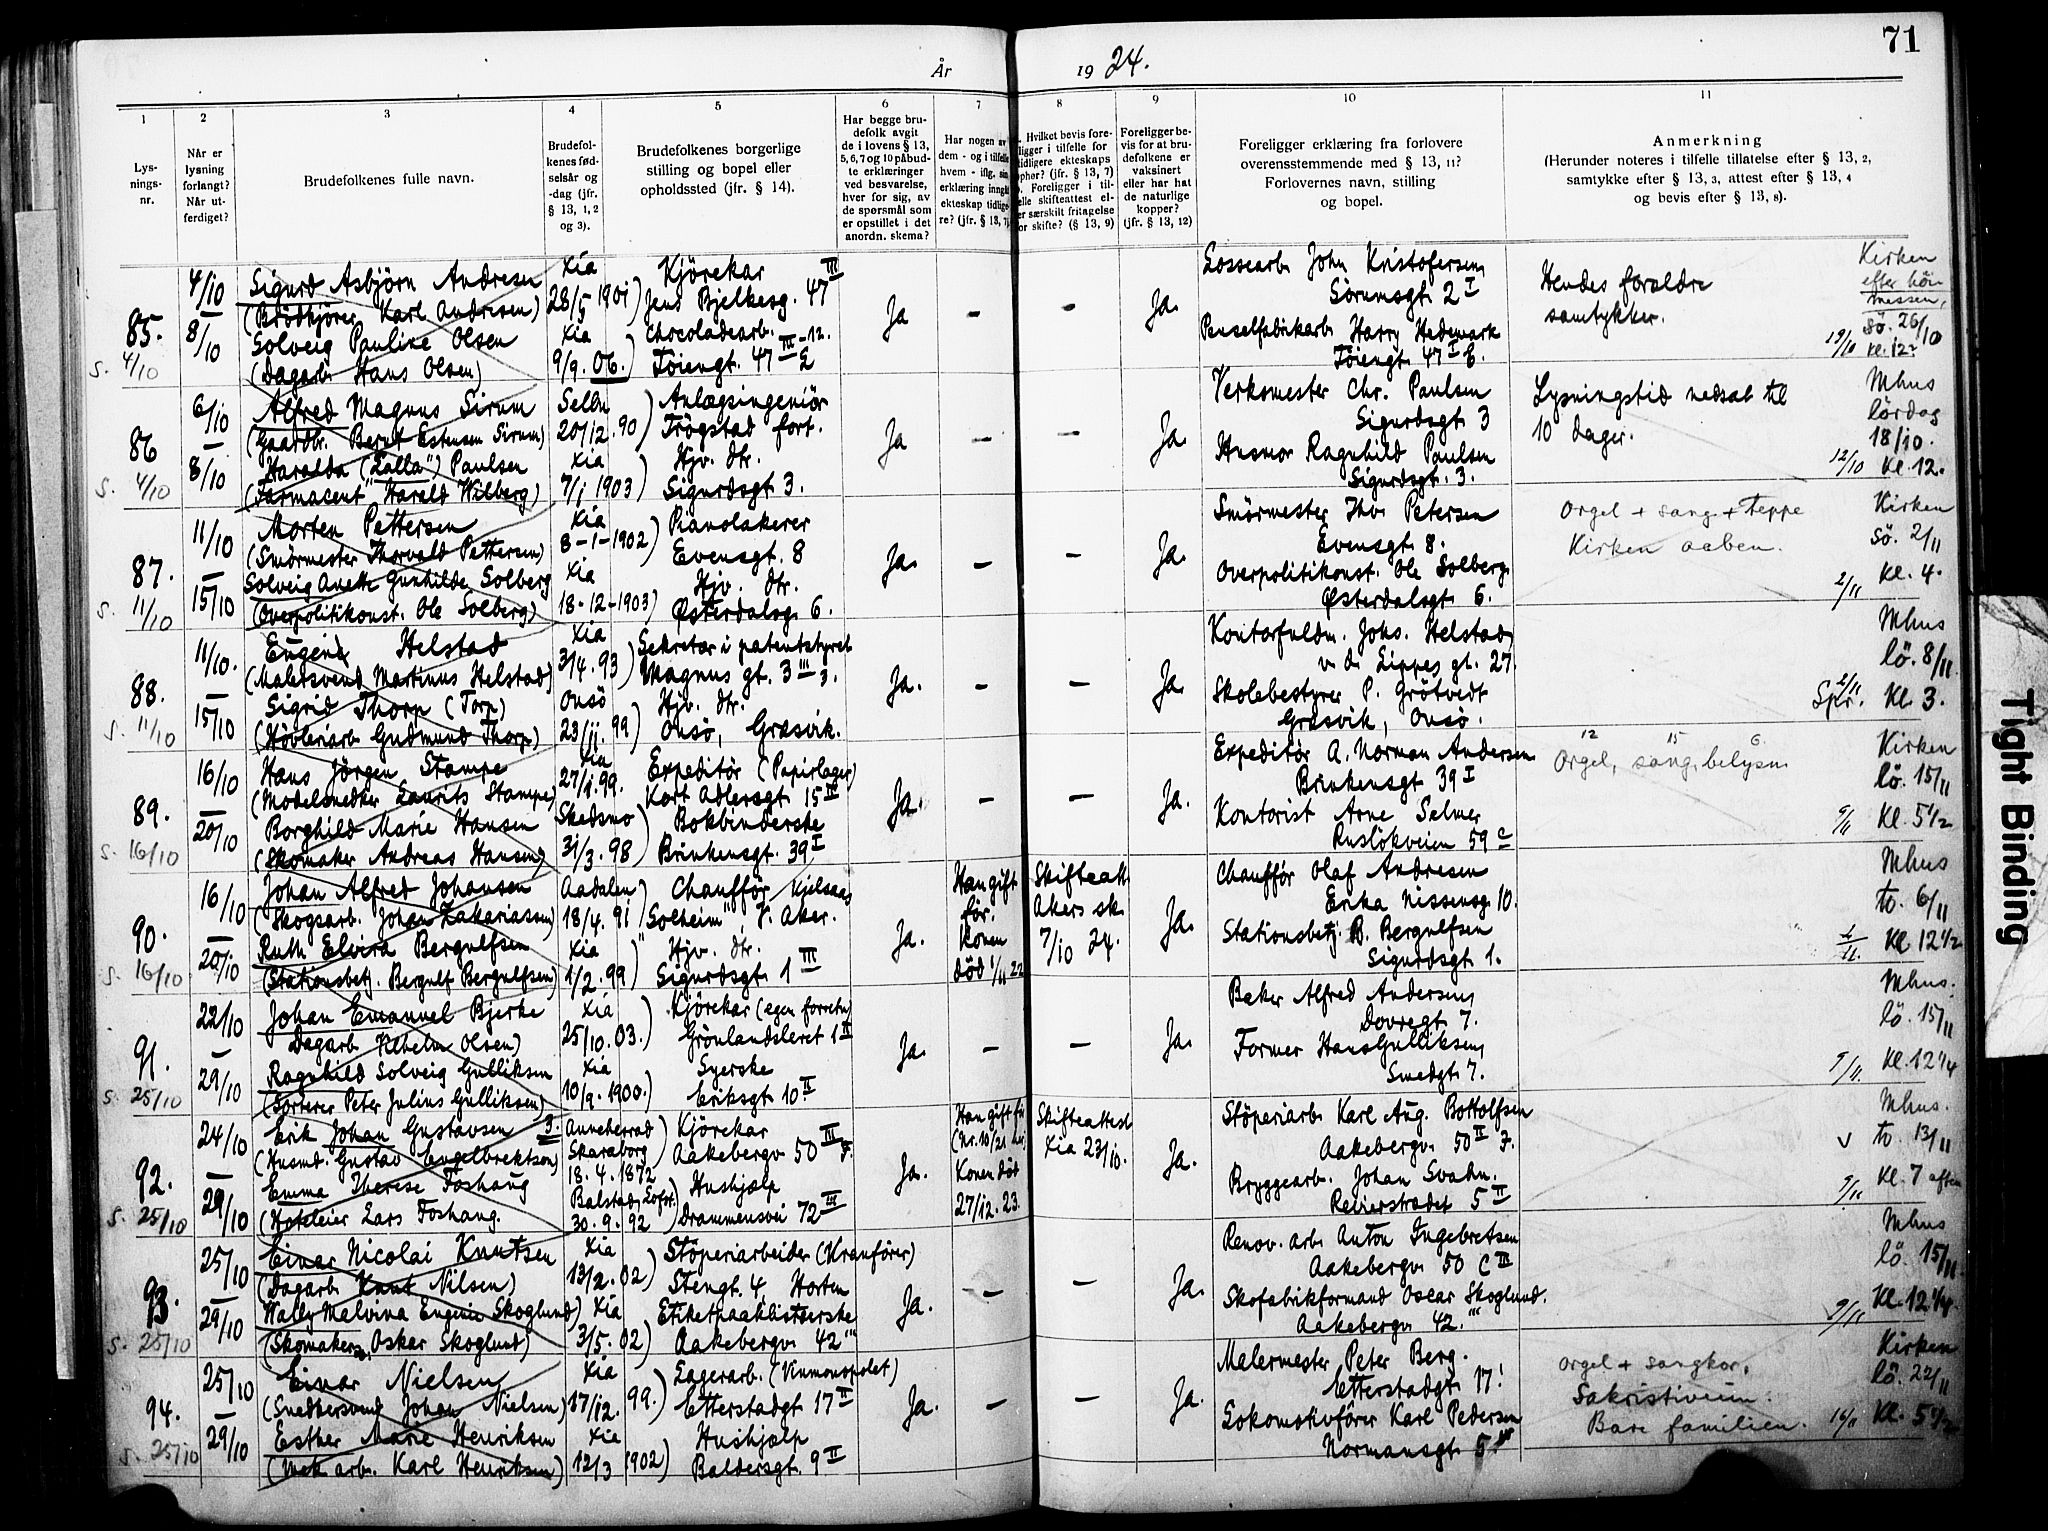 71
År 1924.
1 2 3 4 5 6 7 8 9 10 11
Lysningsnr.
Når er lysning forlangt? Når utferdiget?
Brudefolkenes fulle navn.
Brudefolkenes fødselsår og -dag (jfr. § 13, 1, 2 og 3).
Brudefolkenes borgerlige stilling og bopel eller opholdssted (jfr. § 14).
Har begge brudefolk avgit de i lovens § 13, 5, 6, 7 og 10 påbudte erklæringer ved besvarelse, hver for sig, av de spørsmål som er opstillet i det anordn. skema?
Har nogen av dem - og i tilfelle hvem - iflg. sin erklæring inngåt ekteskap tidligere? (jfr. § 13, 7)
Hvilket bevis foreligger i tilfelle for tidligere ekteskaps ophør? (jfr. § 13, 7) Foreligger i tilfelle skifteattest eller særskilt fritagelse for skifte? (§ 13, 9)
Foreligger bevis for at brudefolkene er vaksinert eller har hat de naturlige kopper? (jfr. § 13, 12)
Foreligger erklæring fra forlovere overensstemmende med § 13, 11? Forlovernes navn, stilling og bopel.
Anmerkning
(Herunder noteres i tilfelle tillatelse efter § 13, 2, samtykke efter § 13, 3, attest efter § 13, 4 og bevis efter § 13, 8).
85. S. 4/10
4/10 – 8/10
Sigurd Asbjörn Andresen
(Brödkjörer Karl Andresen)
Solveig Pauline Olsen
(Dagarb. Hans Olsen)
Xia 28/5 1901)
Xia 9/9. 06.)
Kjörekar
Jens Bjelkesg. 47 III
Chocoladearb.
Töiengt. 47 III
Ja - - Ja.
Lossearb. John Kristofersen
Sörumsgt 2 I
Penselfabrikarb. Harry Hedemark
Töiengt. 47 I
Hendes foreldre
samtykker.
19/10
Kirken
efter höi-
messen,
Sö. 26/10
Kl. 12
86 S. 4/10
6/10 – 8/10
Alfred Magnus Sirum
(Gaardbr. Bernt Estensen Sirum)
Haralda ("Lalla") Paulsen
("Farmacent" Harald Wilberg)
Selbu 20/12. 90)
Xia 7/1 1903)
Anlægsingeniör
Trögstad fort.
Hjv. dtr.
Sigurdsgt 3.
Ja - - Ja.
Verksmester Chr. Paulsen
Sigurdsgt 3
Husmor Ragnhild Paulsen
Sigurdsgt. 3.
Lysningstid nedsat til
10 dager.
12/10
Mhus
lördag
18/10.
Kl. 12.
87. S. 11/10
11/10 – 15/10
Morten Pettersen
(Smörmester Thorvald Pettersen)
Solveig Anette Gunhilde Solberg
(Overpolitikonst. Ole Solberg)
Xia 8-1-1902)
Xia 18-12-1903)
Pianolakerer
Evensgt. 8
Hjv. dtr.
Østerdalsg. 6.
Ja. - - Ja.
Smörmester Thv. Petersen
Evensgt 8.
Overpolitikonst. Ole Solberg
Østerdalsgt 6.
Orgel + sang + teppe
Kirken aaben.
2/11
Kirken
Sö. 2/11
Kl. 4.
88. S. 11/10
11/10. – 15/10
Eugen Helstad
(Malersvend Martinus Helstad)
Sigrid Thorp (Torp)
(Hövleriarb Gudmund Thorp)
Xia 3/4. 93)
Onsö 23/11. 99)
Sekretær i patentstyret
Magnus gt. 3 III
Hjv. dtr.
Onsö, Græsvik.
Ja. - - Ja.
Kontorfuldm. Johs. Helstad
v. d. Lippes gt. 27.
Skolebestyrer P. Grötvedt
Græsvik, Onsö.
2/11
Mhus
lö. 8/11
Kl. 3.
89. S. 16/10
16/10 – 20/10
Hans Jörgen Stampe
(Modelsnedker Laurits Stampe)
Borghild Marie Hansen
(Skomaker Andreas Hansen)
Xia 27/1. 99.
Skedsmo 31/3. 98)
Expeditör (Papirlager)
Kort Adlersgt. 15 II
Bokbinderske
Brinkensgt. 39 I
Ja. - - Ja.
Expeditör A. Norman Andersen
Brinkensgt 39 I
Kontorist Arne Selmer
Ruslökveien 59
12 15 6.
Orgel, sang, belysn.
9/11
Kirken
lö. 15/11
Kl. 5 1/2
90. S. 16/10
16/10 – 20/10
Johan Alfred Johansen
(Skogsarb. Johan Zakariassen)
Ruth Elvira Bergulfsen
(Stationsbetj. Bergulf Bergulfsen)
Aadalen 18/4. 91
Xia 1/2. 99)
Chauffør, Kjelsaas
"Solheim" V. Aker.
Hjv. dtr.
Sigurdsgt 1 III
Ja.
Han gift
før.
Konen
död 1/11 22
Skifteatt.
Akers sk.
7/10 24.
Ja.
Chauffør Olaf Andresen
Erika Nissensg. 10.
Stationsbetj. B. Bergulfsen
Sigurdsgt 1.
2/11.
Mhus
to. 6/11
Kl 12 1/2
91. S. 25/10
22/10 – 29/10
Johan Emanuel Bjerke
Dagarb. Vilhelm Olsen)
Ragnhild Solveig Gulliksen
(Sorterer Peter Julius Gulliksen)
Xia 25/10. 03.)
Xia 10/9. 1900.)
Kjörekar (egen forretn)
Grönlandsleret 1 II
Syerske
Eriksgt. 10 II
Ja. - - Ja.
Baker Alfred Andersen
Dovregt 7.
Former Hans Gulliksen
Smedgt 7.
Mhus.
lö. 15/11
Kl. 12 1/4
92. S. 25/10
24/10 – 29/10
Erik Johan Gustavsen 3.
(Husmd. Gustav Engelbrektson)
Emma Therese Foshaug
(Hoteleier Lars Foshaug.
Anneherrad
Skaraborg
18. 4. 1872
Balstad, Lofot.)
30. 9. 92
Kjörekar
Aakebergv. 50 III F.
Hushjælp
Drammensvei 72 III
Ja.
Han gift før
(Nr. 10/21 her)
Konen död
27/12. 23.
Skifteattest
Xia 23/10.
Ja.
Stöperiarb. Karl Aug. Bottolfsen
Aakebergv 50 II F.
Bryggearb. Johan Svahn.
Reierstrædet 5 II
v 9/11
Mhus.
to. 13/11
Kl. 7 aften
93. S. 25/10
25/10 – 29/10
Einar Nicolai Knutsen
(Dagarb. Knut Nilsen)
Wally Malvina Eugenie Skoglund)
(Skomaker Oskar Skoglund)
Xia 13/2. 02)
Xia 3/5. 02)
Stöperiarbeider (Kranförer)
Stengt. 4, Horten
Etiketpaaklisterske
Aakebergv. 42 '''
Ja. - - Ja.
Renov. arb. Anton Ingebretsen
Aakebergv. 50 C III
Skofabrikformand Oscar Skoglund.
Aakebergv. 42. '''
9/11
Mhus
lö. 15/11
Kl. 12 1/4
94. S. 25/10
25/10 – 29/10
Einar Nielsen
(Snedkersvend Johan Nielsen)
Esther Marie Henriksen
(Mek arb. Karl Henriksen)
Xia 17/12. 99.)
Xia 12/3 1902)
Lagerarb. (Vinmonopolet)
Etterstadgt 17 II
Hushjælp
Baldersgt. 9 II
Ja. - - Ja.
Malermester Peter Berg.
Etterstadgt. 17!
Lokomotivfører Karl Pedersen
Normansgt 5
Orgel + sangkor,
Sakristiveien.
Bare familien.
16/11
Kirken
lö. 22/11
Kl. 5 1/2
Tight Binding